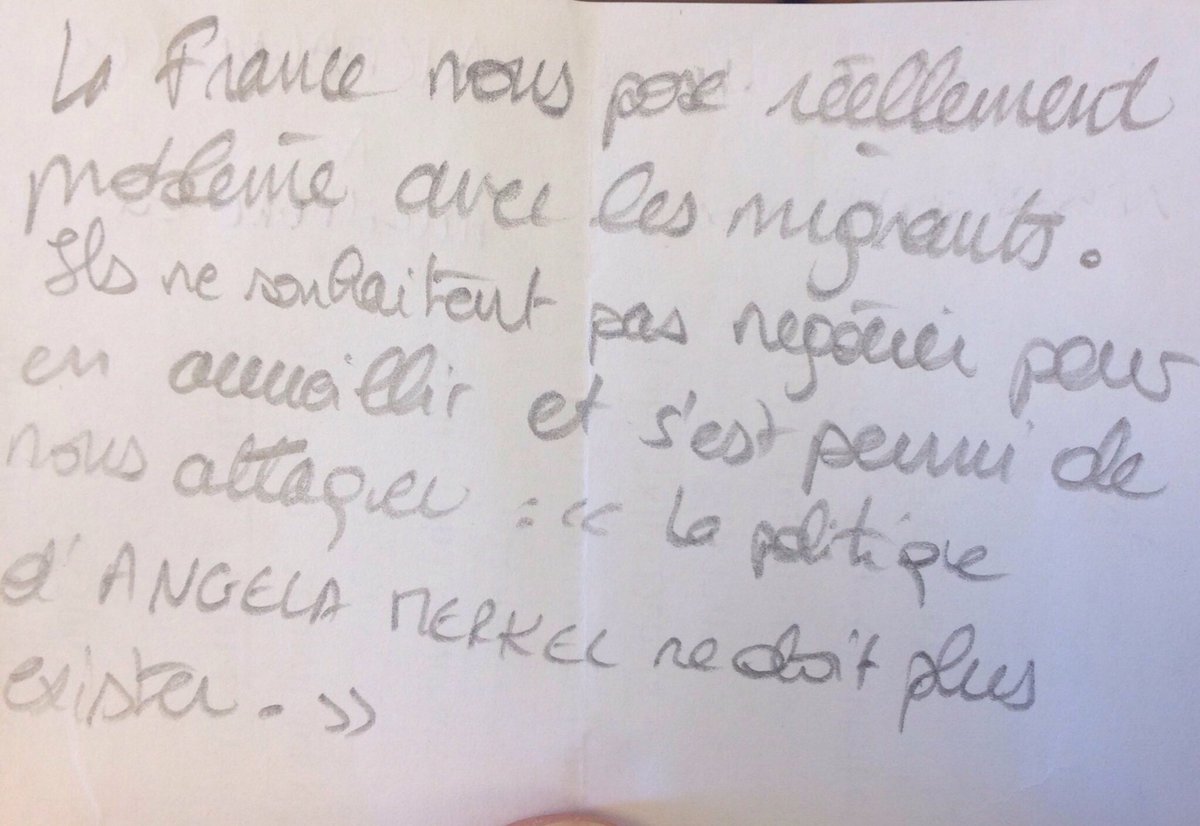 La France nous pose réellement
problème avec les migrants.
Ils ne souhaitent pas négocier pour
en accueillir et s'est permi de
nous attaquer : « La politique
d'ANGELA MERKEL ne doit plus
exister. »